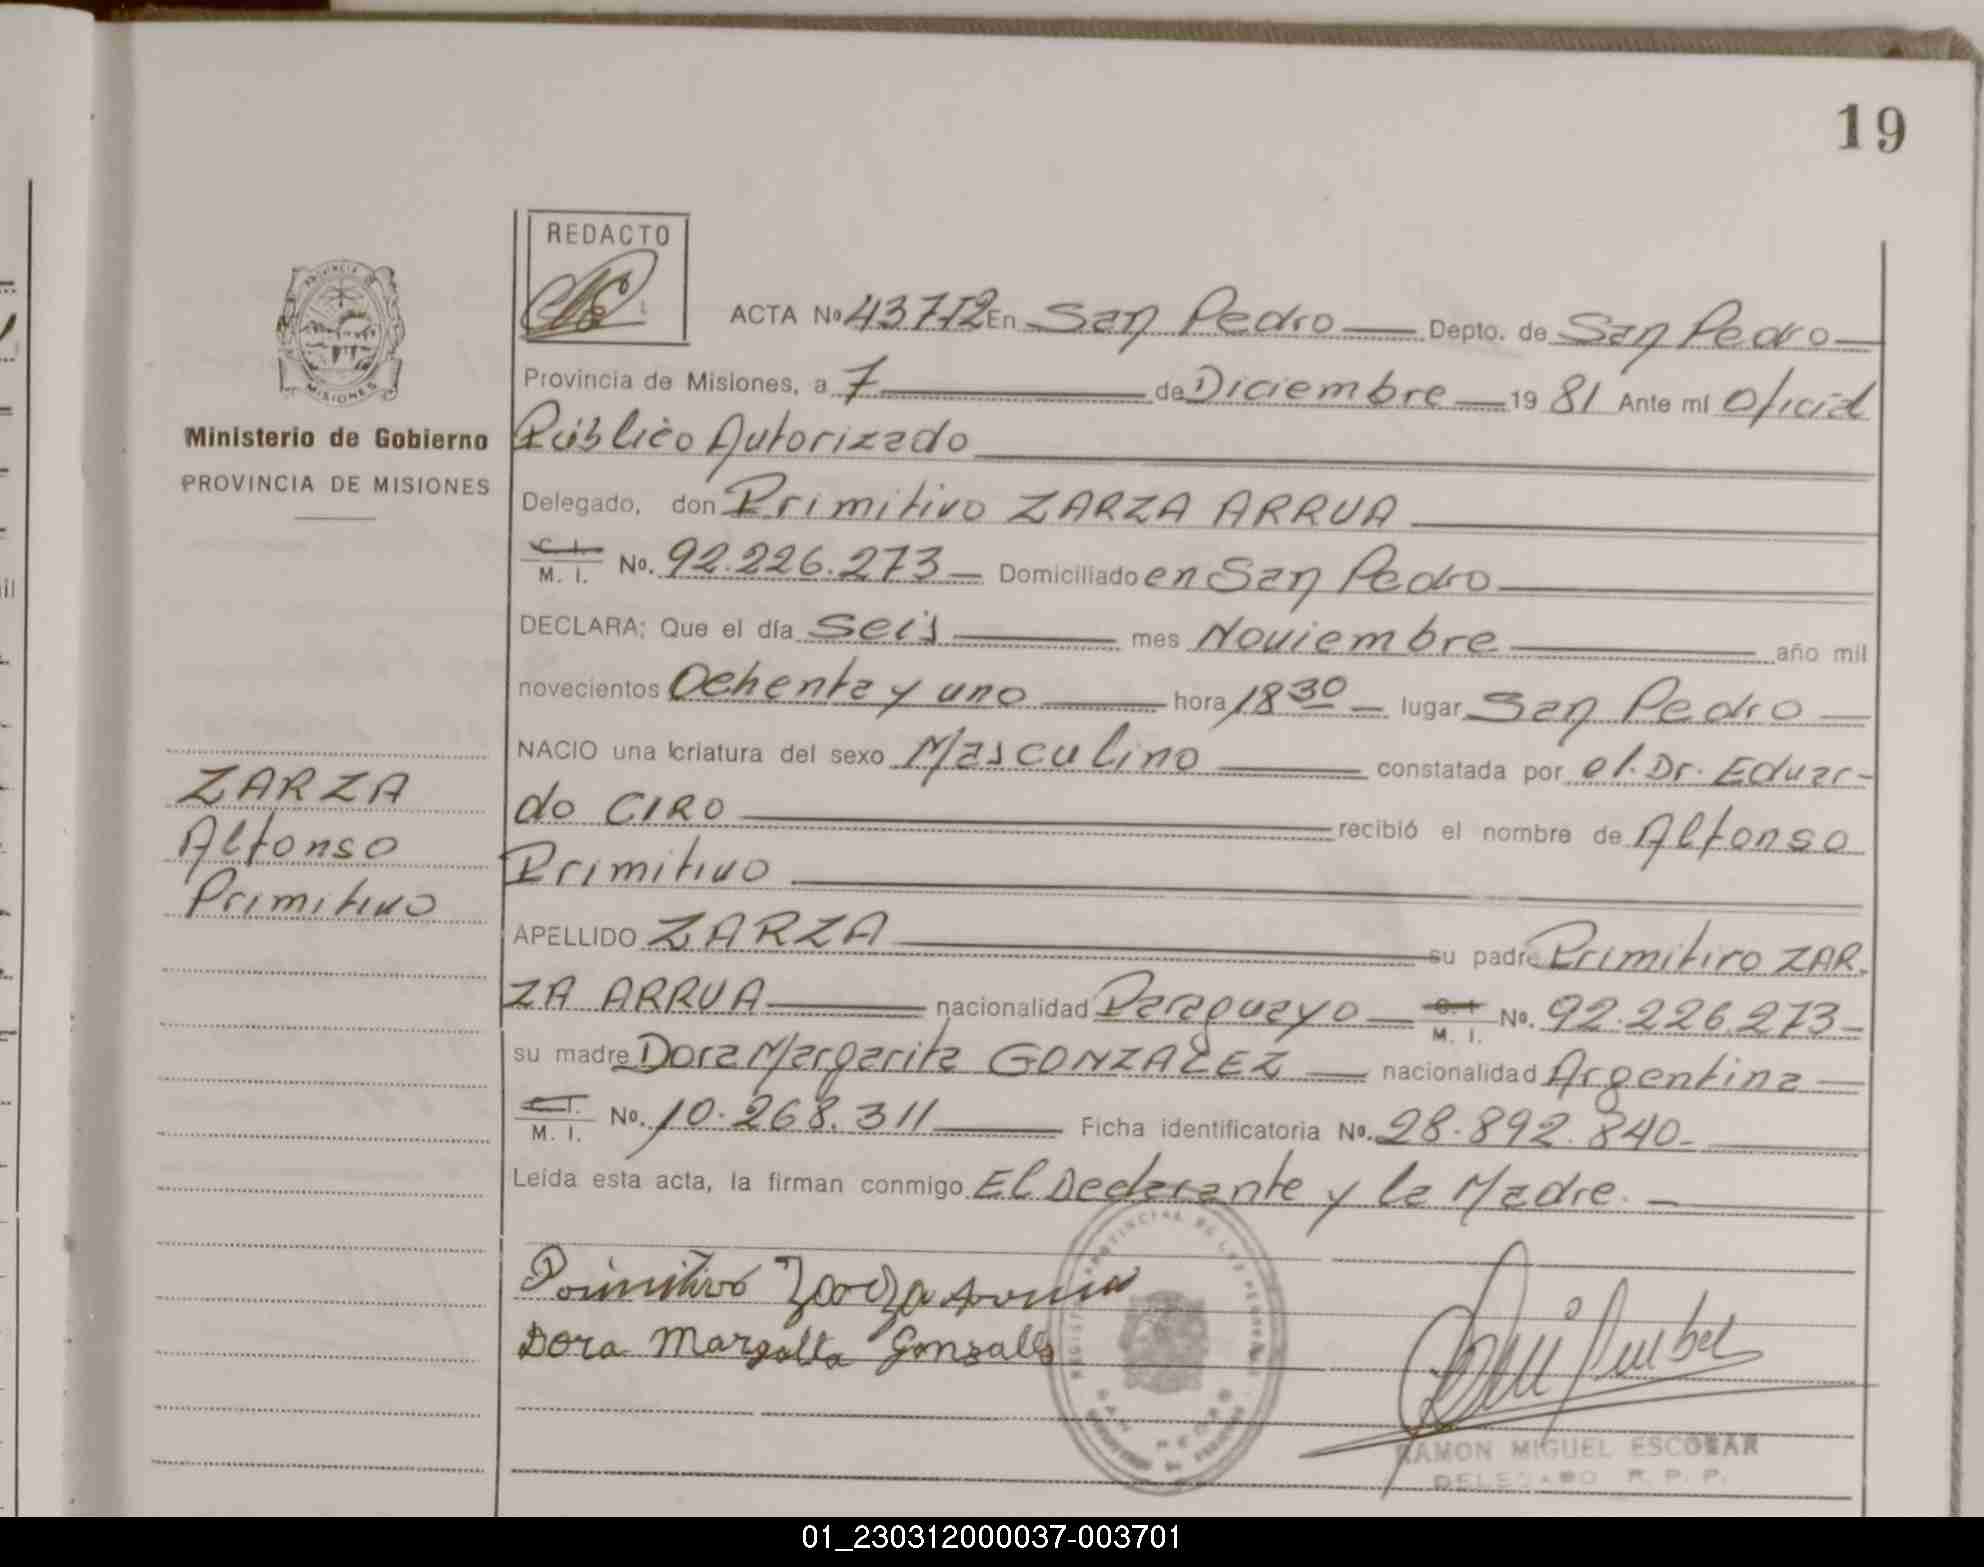 19
REDACTO
ACTA Nº 437T2 En San Pedro Depto. de San Pedro
Provincia de Misiones, a 7 de Diciembre 1981 Ante mí Oficial
Ministerio de Gobierno
Público Autorizado
PROVINCIA DE MISIONES
Delegado, don Primitivo ZARZA ARRUA
C. I.
M. I. Nº. 92.226.273 Domiciliado en San Pedro
DECLARA; Que el día seis mes Noviembre año mil
novecientos Ochenta y uno hora 18 30 lugar San Pedro
NACIO una criatura del sexo Masculino constatada por el Dr. Eduar-
do CIRO recibió el nombre de Alfonso
Primitivo
ZARZA
Alfonso
Primitivo
APELLIDO ZARZA su padre Primitivo ZAR-
ZA ARRUA nacionalidad Paraguayo C. I. M. I. Nº. 92.226.273
su madre Dora Margarita GONZALEZ nacionalidad Argentina
C. I.
M. I. Nº. 10.268.311 Ficha identificatoria Nº. 28.892.840-
Leída esta acta, la firman conmigo El Declarante y la Madre.
Primitivo Zarza Arrua
Dora Margatta Gonzalez
REGISTRO PROVINCIAL DE LAS PERSONAS
SAN PEDRO
RAMON MIGUEL ESCOBAR
DELEGADO R. P. P.
01_230312000037-003701